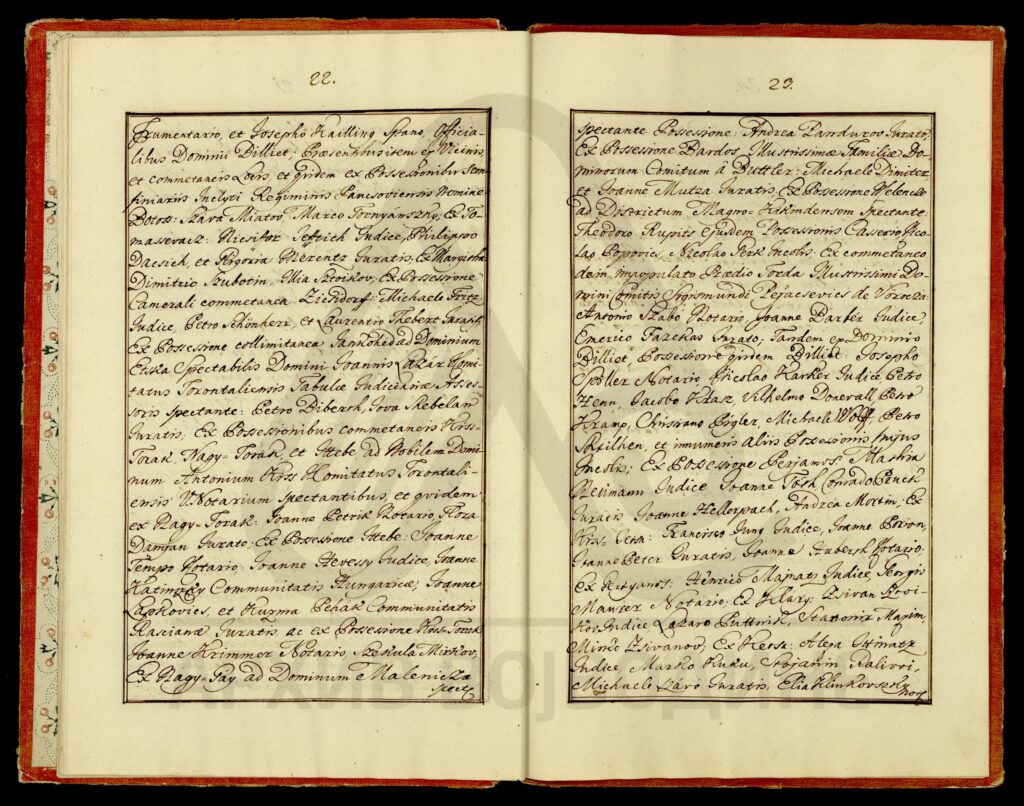 22.
Frumentario, et Josepho Hailling Spano, Officia-
libus Dominii Dilliet; Præsentibus item ex Vicinis,
et commetaneis Locis, et qvidem ex Possessionibus Con-
finiariis Inclyti Regiminis Pancsoviensis Nomine
Botos: Szava Miatov, Marco Tornyanszky, Ex To-
masevacz: Nicsifor Jeftich Judice, Philippo
Dacsich, et Grigoria Merentz Juratis, Ex Margitha
Dimitrio Szubotin, Ilia Sztoikov, Ex Possessione
Camerali commetanea Zichidorf: Michaele Fritz
Judice, Petro Schönherr, et Laurentio Thebert Juratis,
Ex Possessione collimitanea Jankahid ad Dominium
Etska Spectabilis Domini Joannis Lazar Comi-
tatus Torontaliensis Tabulæ Judiciariæ Asses-
soris Spectante: Petro Dibersh, Jova Skebelan
Juratis, Ex Possessionibus commetaneis Kiss-
Torak, Nagy-Torak, et Ittebe ad Nobilem Domi-
num Antonium Kiss Comitatus Torontali-
ensis V. Notarium Spectantibus, et qvidem
ex Nagy-Torak: Joanne Petrik Notario, Floza
Damjan Jurato, Ex Possessione Ittebe: Joanne
Tempo Notario, Joanne Hevessy Judice, Joanne
Communitatis Hungaricæ, Joanne
Lapkovics, et Kuzma Pekak Communitatis
Rascianæ Juratis, ac ex Possessione Kiss-Torak
Joanne Krimmer Notario, Szekula Mirkov,
Ex Nagy-Gay ad Dominum Malenicza
Spect
23.
Spectante Possessione: Andrea Pandurov Jurato,
Ex Possessione Pardos, Illustrissimæ Familiæ Do-
minorum Comitum á Buttler: Michaele Dimiter
et Joanne Mutza Juratis, Ex Possessione Melencze
ad Districtum Magno-Kikindensem Spectante:
Theodoro Rupits ejusdem Possessionis Casserio, Nico-
lao Popovics, Nicolao Jerk Incolis, Ex commetaneo
dein impopulato Prædio Torda Illustrissimi Do-
mini Comitis Sigismundi Pejacsevics de Verocza:
Antonio Szabo Notario, Joanne Barber Judice,
Emerico Fazekas Jurato; Tandem ex Dominio
Dilliet, Possessione qvidem Dilliet: Josepho
Spoller Notario, Nicolao Harker Judice Petro
Henn, Jacobo Kraz, Vilhelmo Donevall, Petro
Kramp, Christiano Pigler, Michaele Wolff, Petro
et innumeris Aliis Possessionis hujus
Incolis; Ex Possessione Perjamos: Mathia
Retimann Judice Joanne Tosh Conrado Penck
Juratis Joanne Hellerpach, Andrea Mottin, Ex
Kiss-Jetsa: Francisco Jung Judice, Joanne Perion,
Joanne Peter Juratis, Joanne Hubersh Notario.
Ex Henrico Majnatz Judice, Georgio
Maurer Notario, Ex Klary: Zsivan Stevi-
kov Judice Lazaro Puttnik, Stanomir Maxim
Mince Zsivanov, Ex Kersa: Alexa
Judice, Marko Kuku, Stojanin Kalivoi,
Michaele Száró Juratis, Elia Klinkovszky